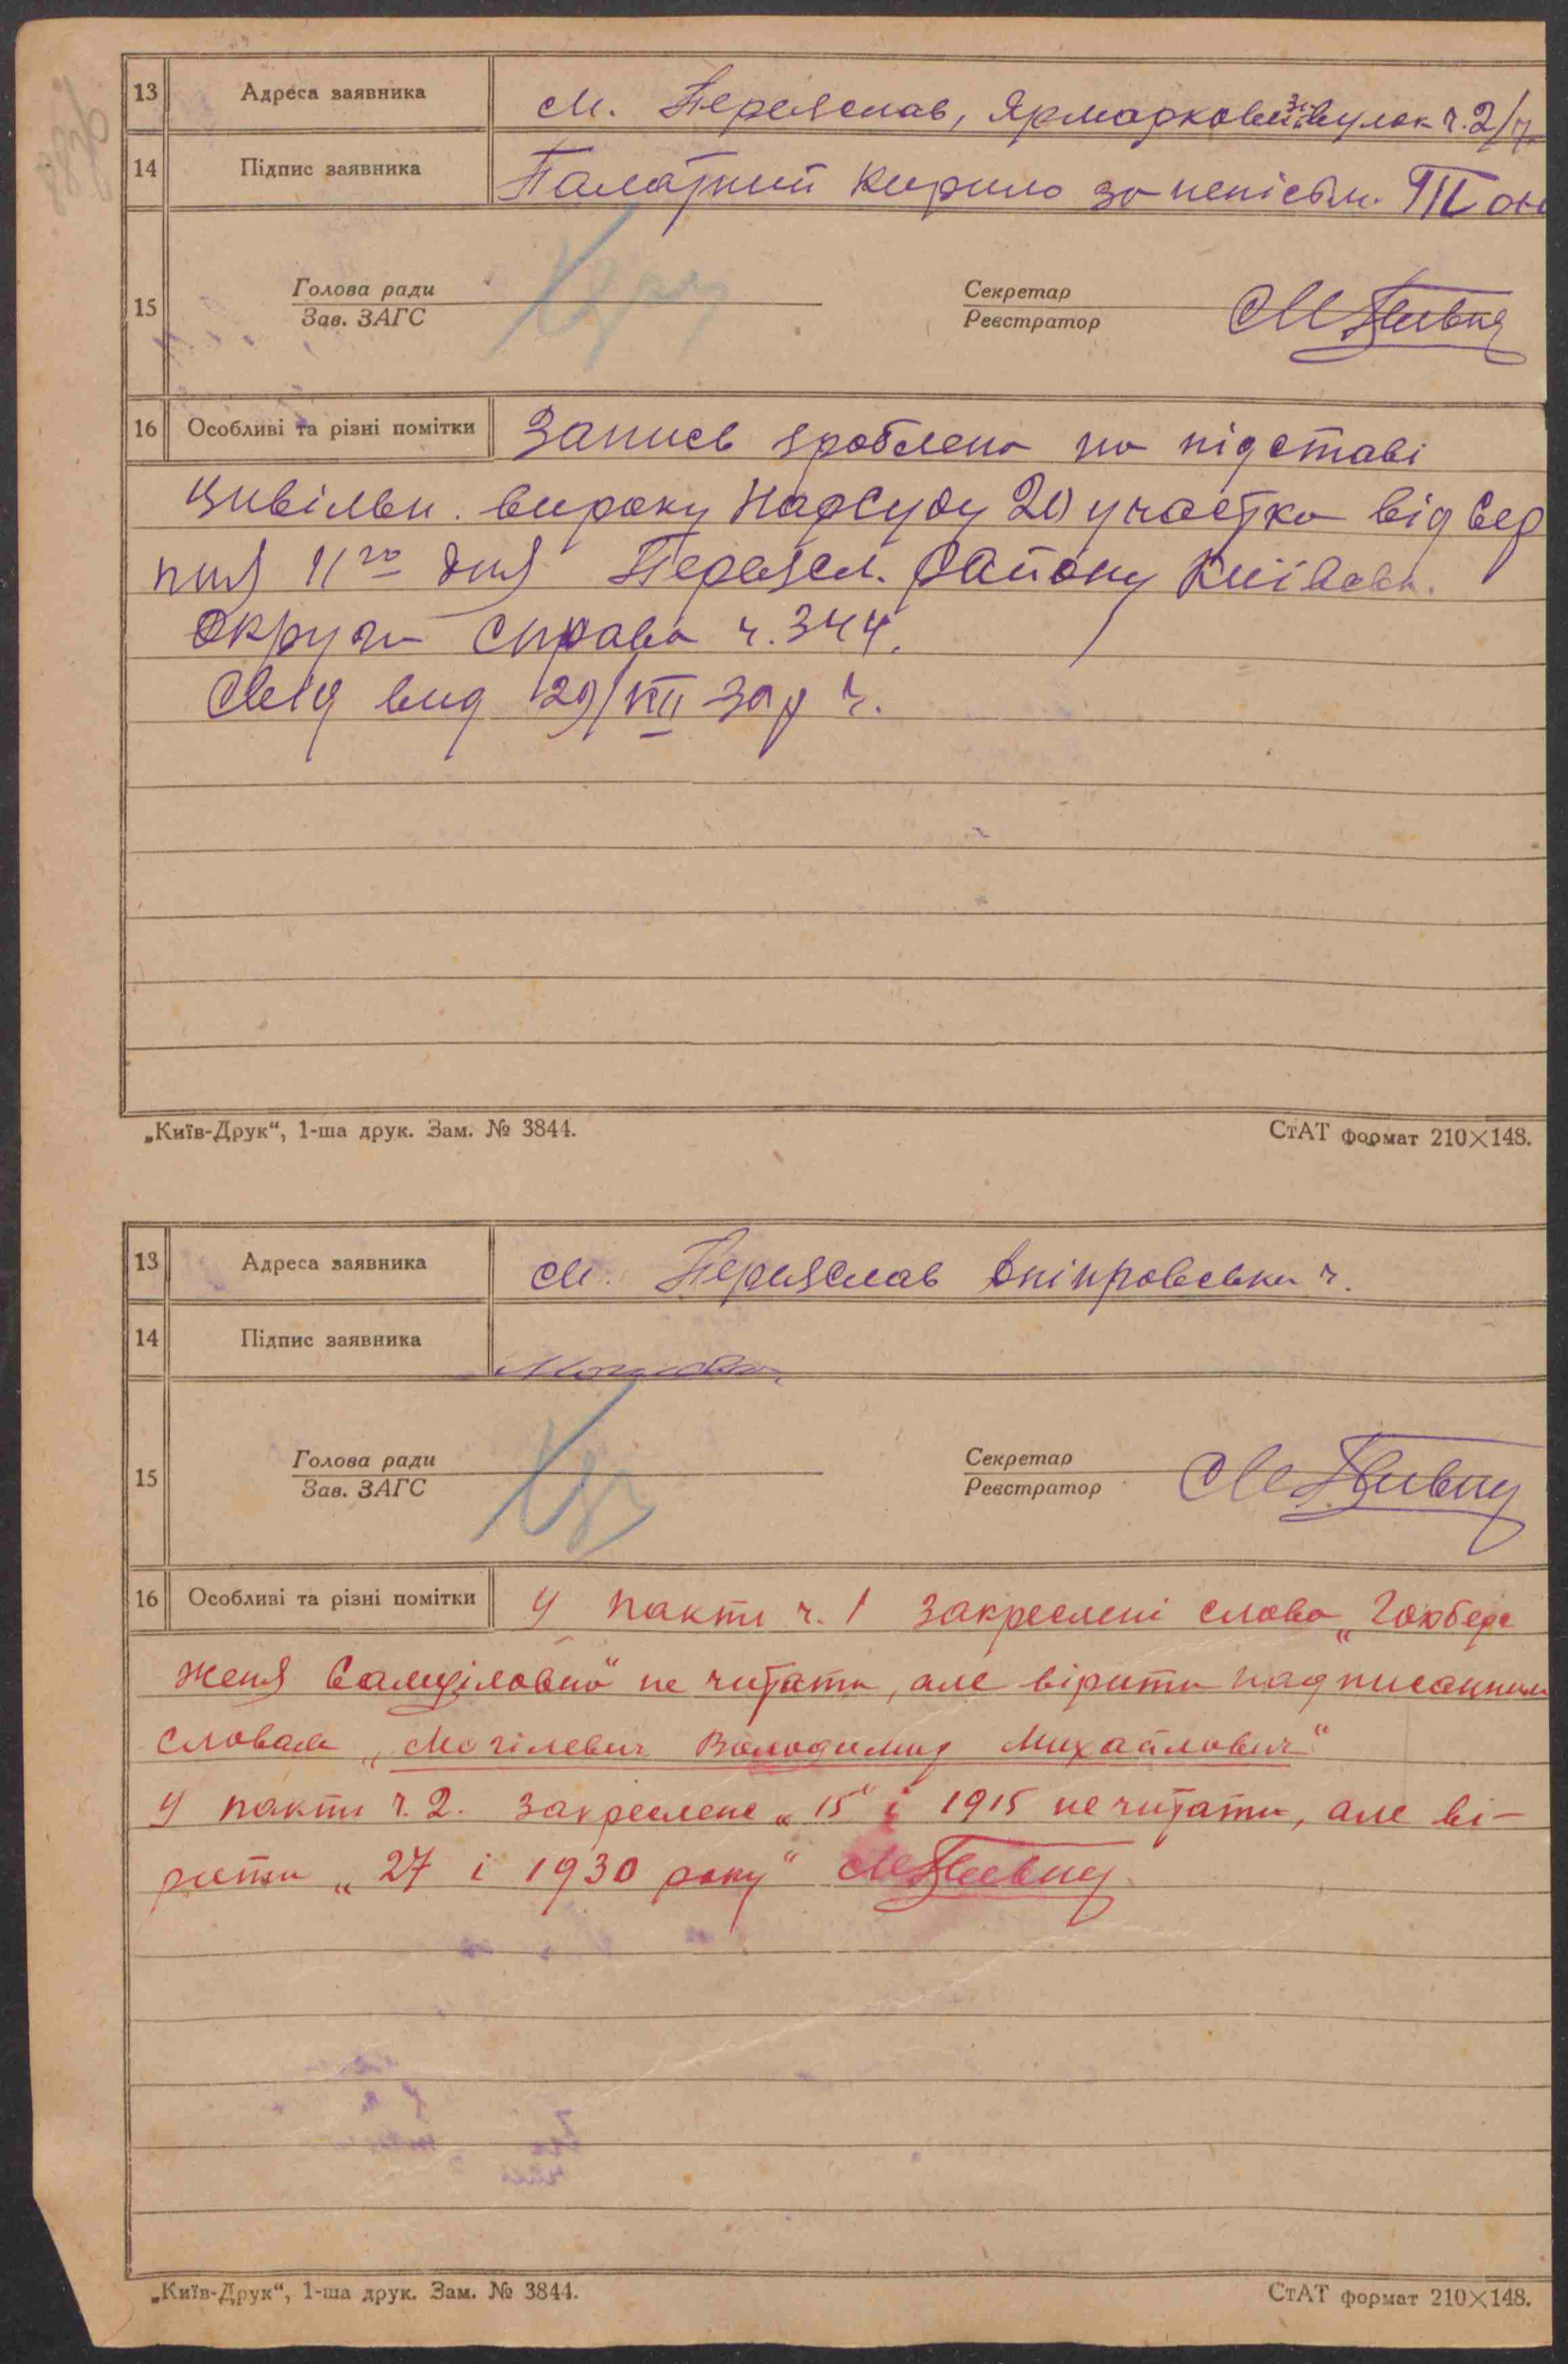 13 Адреса заявника м. Переяслав, Ярмарковий завулок ч. 2/7
14 Підпис заявника Паламарний Кирило за неписьм.
15 Голова ради Секретар
Зав. ЗАГС Реєстратор
16 Особливі та різні помітки Запись зроблено на підставі
цивільн. вироку НарСуду 20 участка від Сер
пня 11го дня Переясл. Району Київськ.
округи справа ч. 344.
Свід вид 29/VII зар ч.
„Київ-Друк“, 1-ша друк. Зам. № 3844. СтАТ формат 210×148.
13 Адреса заявника м. Переяслав Дніпровська ч.
14 Підпис заявника
15 Голова ради Секретар
Зав. ЗАГС Реєстратор
16 Особливі та різні помітки У пакти ч. 1 закреслені слова „Гохберг
Женя Самуіловна“ не читати, але вірити надписанним
словам „Могілевич Володимир Михайлович“
У пакти ч. 2. закреслене „15“ і 1915 не читати, але ві-
рити „27 і 1930 року“
„Київ-Друк“, 1-ша друк. Зам. № 3844. СтАТ формат 210×148.